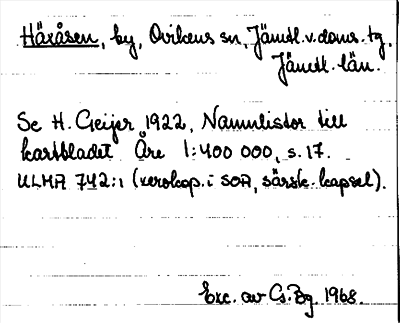 Häxåsen, by, Ovikens sn, Jämtl. v. doms. tg,
Jämtl. län.
Se H. Geijer 1922, Namnlistor till
kartbladet Åre 1:400 000, s. 17.
ULMA 742:1 (xerokop. i SOA, särsk. kapsel).
Exc. av Cs. Bg. 1968.